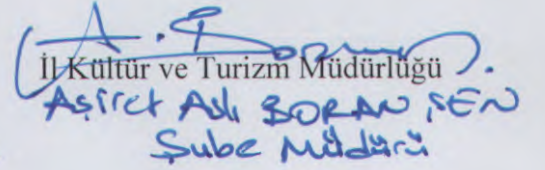 A. Boran
İl Kültür ve Turizm Müdürlüğü
Aşiret Aslı BORAN ŞEN
Şube Müdürü